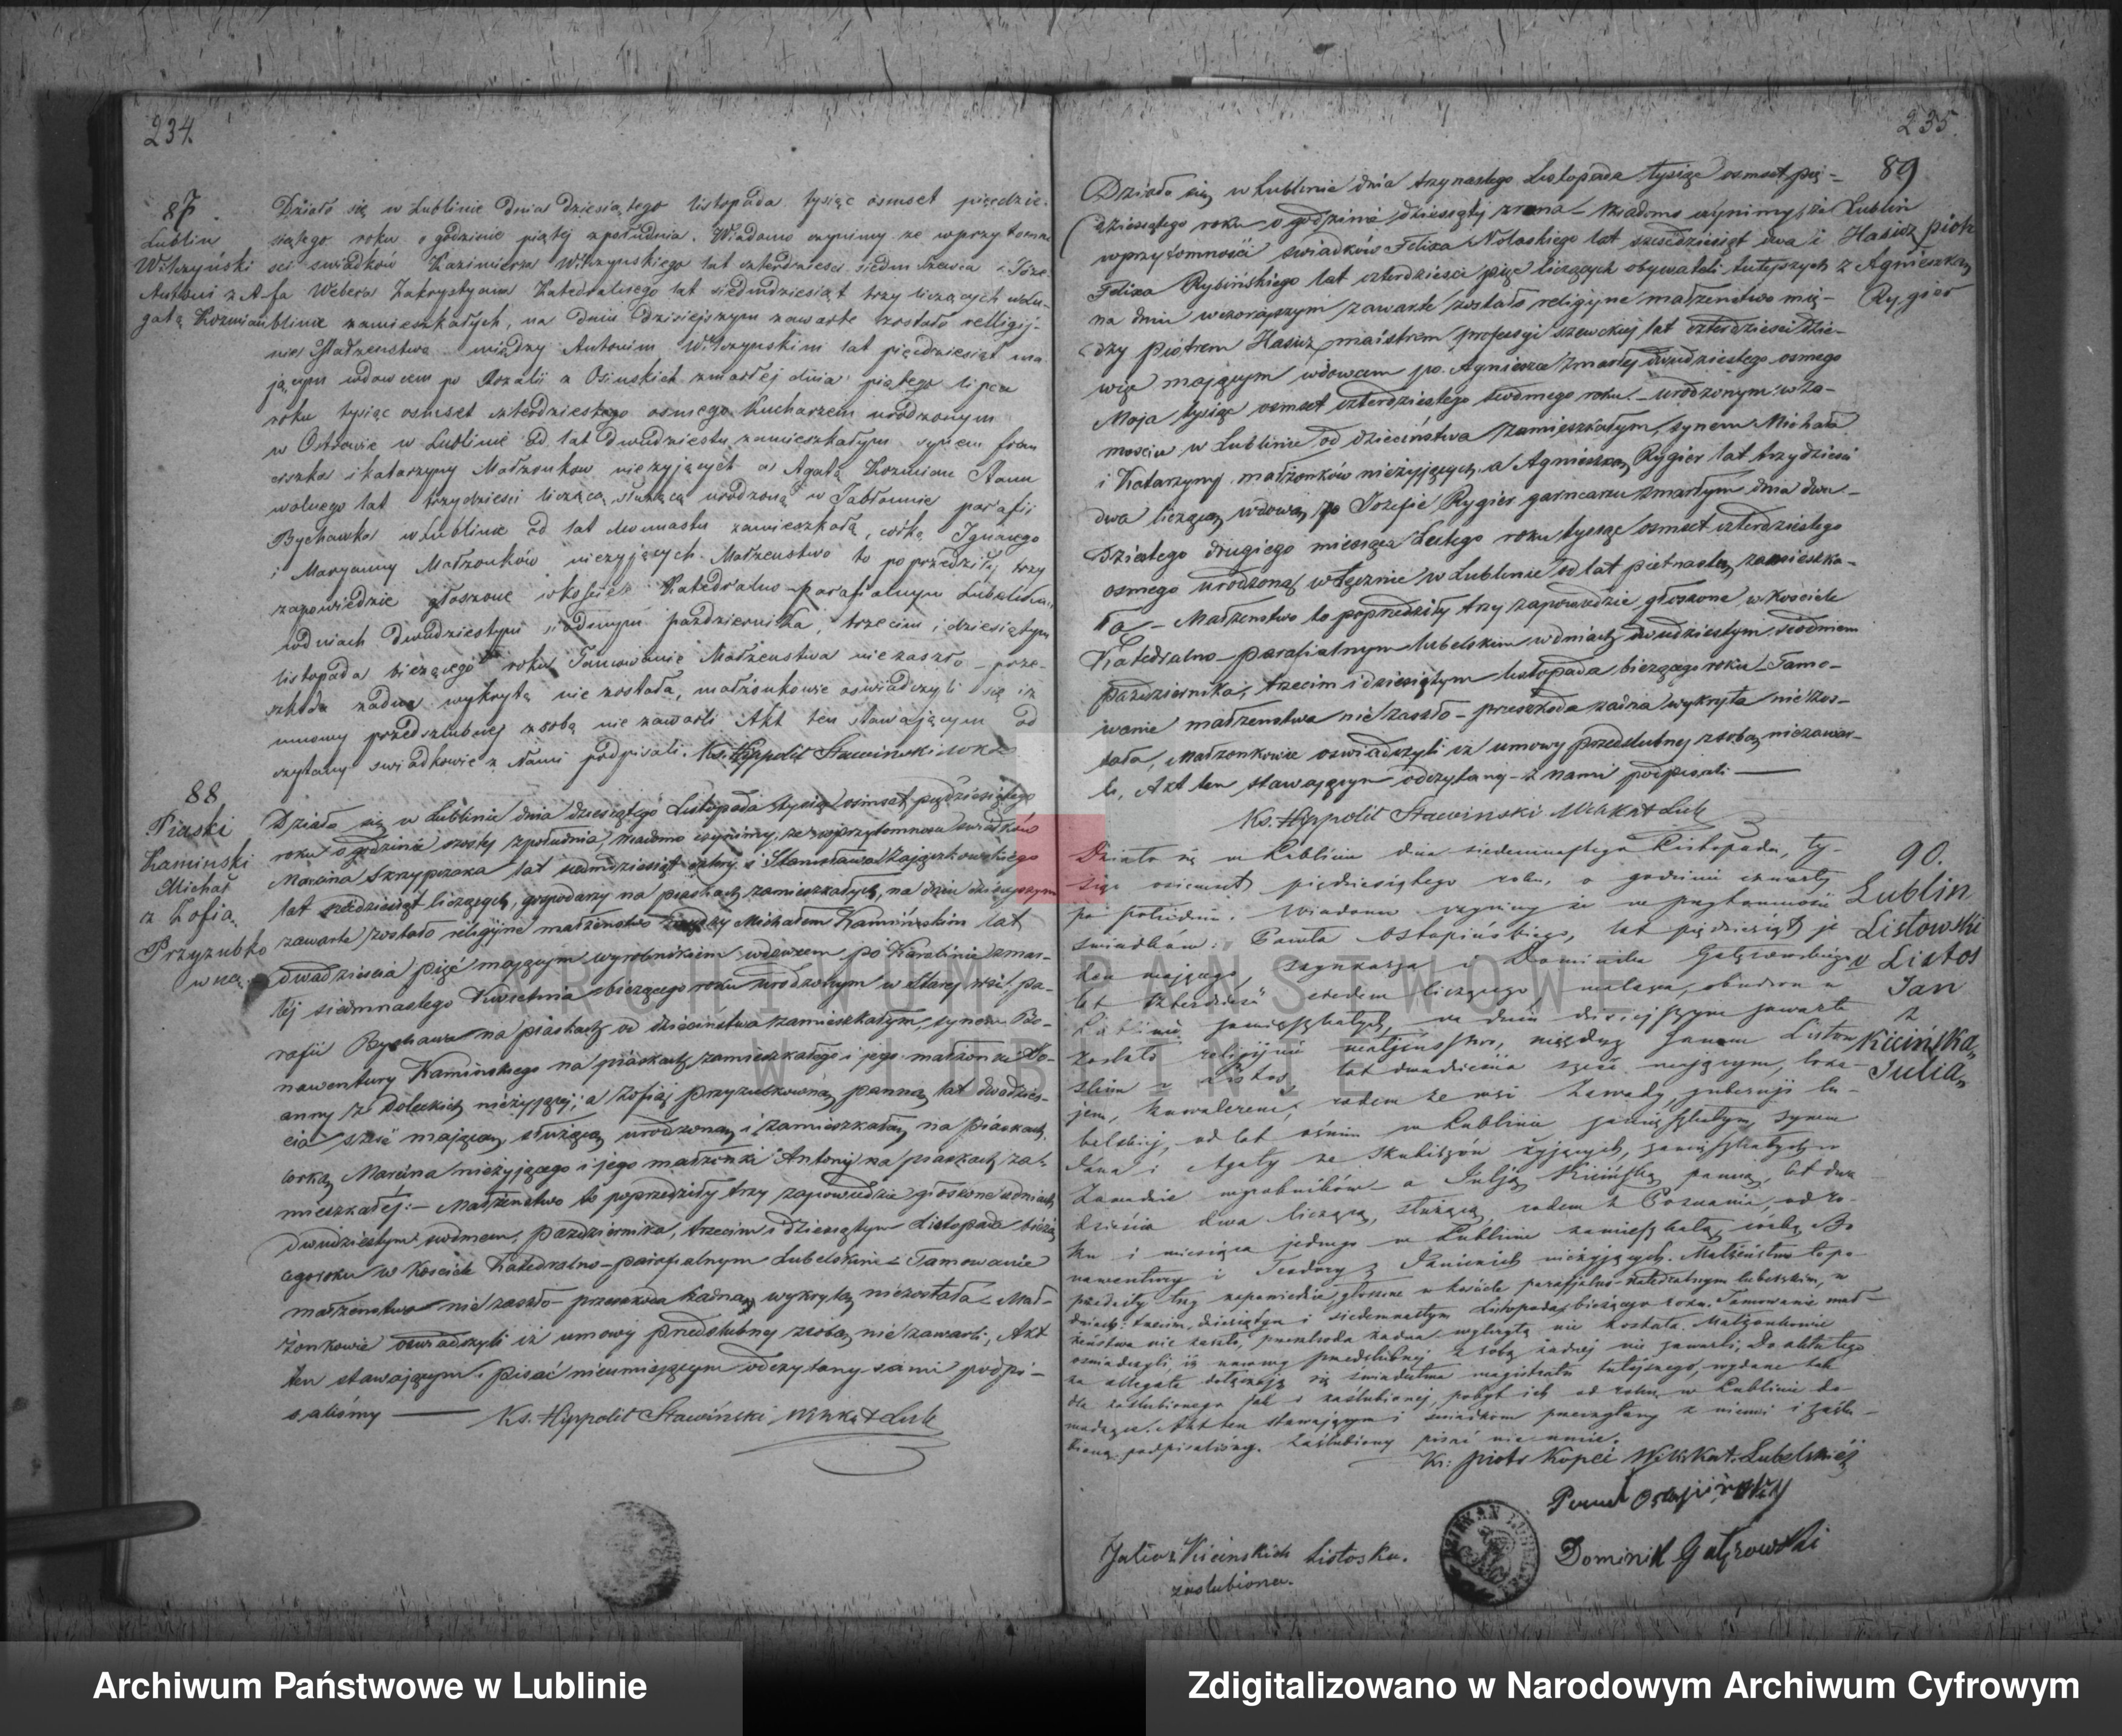 234
87.
Lublin
Witczyński
Antoni z A-
gatą Kozmian
Działo się w Lublinie dnia dziesiątego listopada tysiąc osmset pięcdzie-
siątego roku o godzinie piątej zpołudnia. Wiadomo czynimy ze wprzytomno
sci swiadków Kazimierza Witczynskiego lat czterdziesci siedm Szewca i Joze-
fa Webera Zakrystyana Katedralnego lat siedmdziesiąt trzy liczących wLu-
blinie zamieszkałych, na dniu dzisiejszym zawarte zostało religij-
ne Małzenstwo między Antonim Witczynskim lat pięcdziesiąt ma
jącym wdowcem po Rozalii z Osinskich zmarłej dnia piątego lipca
roku tysiąc osmset czterdziestego osmego Kucharzem urodzonym
w Ostrowie w Lublinie od lat dwudziestu zamieszkałym synem Fran
ciszka i Katarzyny Małzonkow niezyjących a Agatą Kozmian Stanu
wolnego lat trzydziesci liczącą, słuzącą urodzoną w Jabłonnie parafii
Bychawka w Lublinie od lat dwunastu zamieszkałą, córką Ignacego
i Maryanny Małzonków niezyjących. Małzenstwo to poprzedziły trzy
zapowiedzie głoszone wkościele Katedralno-parafialnym Lubelskim
wdniach dwudziestym siodmym pazdziernika, trzecim i dziesiątym
listopada biezącego roku Tamowanie Małzenstwa nie zaszło - prze-
szkoda zadna wykrytą nie została, małzonkowie oswiadczyli się iz
umowy przedszlubnej zsobą nie zawarli Akt ten stawającym od
czytany swiadkowie z Nami podpisali. Ks. Hyppolit Stawinski WKL
88
Piaski
Kaminski
Michał
z Zofią
Przyzubko
wną
Działo się w Lublinie dnia dziesiątego Listopada tysiąc osmset pięcdziesiątego
roku o godzinie szostej zpołudnia, wiadomo czynimy, ze wprzytomnosci swiadków
Marcina Skrzypczaka lat siedmdziesiąt cztery i Stanisława Zajączkowskiego
lat szescdziesiąt liczących, gospodarzy na piaskach zamieszkałych, na dniu dzisiejszym
zawarte zostało religijne małzenstwo między Michałem Kamińskim lat
dwadziescia pięć mającym wyrobnikiem wdowcem po Karolinie zmar-
łej siedmnastego Kwietnia biezącego roku urodzonym w Starej wsi pa-
rafii Bychawa na piaskach od dzieciństwa zamieszkałym, synem Bo-
nawentury Kaminskiego na piaskach zamieszkałego i jego małzonki Jo-
anny z Doleckich niezyjącej; a Zofią Przyzubkowną panną lat dwadzies-
cia sześć mającą, służącą urodzoną i zamieszkałą na Piaskach,
córką Marcina nieżyjącego i jego małzonki Antoniny na piaskach za-
mieszkałej:- Małżeństwo to poprzedziły trzy zapowiedzie głoszone wdniach
dwudziestym siodmem, pazdziernika, trzecim i dziesiątym Listopada bieżą
cego roku w Kosciele Katedralno-parafialnym Lubelskim - Tamowanie
małzenstwa nie zaszło- przeszkoda żadna wykrytą niezostała - Mał-
żonkowie oswiadczyli iż umowy przedslubnej zsobą nie zawarli, Akt
ten stawającym i pisać nieumiejącym odczytany sami podpi-
saliśmy — Ks. Hippolit Stawiński Wik Kat Lub
235.
89
Lublin
Hasisz Piotr
z Agnieszką
Rygier
Działo się w Lublinie dnia trzynastego Listopada tysiąc osmset pię-
dziesiątego roku o godzinie dziesiątej zrana - Wiadomo czynimy, że
wprzytomności swiadków Felixa Nolaskiego lat szescdziesiąt dwa i
Felixa Rybińskiego lat czterdziesci pięć liczących obywateli tutejszych
na dniu wczorajszym zawarte zostało religijne małżenstwo mię-
dzy Piotrem Hasisz maistrem professyi szewckiej lat czterdziesci dzie-
więć mającym wdowcem po Agnieszce zmarłej dwudziestego osmego
Maja tysiąc osmset czterdziestego siodmego roku - urodzonym w Za-
mosciu w Lublinie od dzieciństwa zamieszkałym, synem Michała
i Katarzyny małżonków nieżyjących, a Agnieszką Rygier lat trzydziesci
dwa liczącą, wdową po Jozefie Rygier garncarzu zmarłym dnia dwu-
dziestego drugiego miesiąca Lutego roku tysiąc osmset czterdziestego
osmego urodzoną w Łęcznie w Lublinie od lat pietnastu zamieszka-
łą - Małzenstwo to poprzedziły trzy zapowiedzie głoszone wkościele
Katedralno-parafialnym lubelskim wdniach dwudziestym siódmem
pazdziernika, trzecim i dziesiątym listopada biezącego roku - Tamo-
wanie małzenstwa nie zaszło - przeszkoda żadna wykryta niezos-
tała, Małzonkowie oswiadczyli iz umowy przedslubnej zsobą niezawar-
li, Akt ten stawającym odczytany - z nami podpisali —
Ks. Hyppolit Stawinski Wik Kat Lub
90.
Lublin
Listowski
v Listos
Jan
z
Kicińską
Julią
Działo się w Lublinie dnia siedemnastego Listopada, ty-
siąc osiemset piędziesiątego roku, o godzinie czwartej
po południu. Wiadomo czynimy iż w przytomności
świadków: Pawła Ostapińskiego, lat piędziesiąt je
den mającego, szynkarza i Dominika Gałęzowskiego
lat czterdzieści siedem liczącego, malarza, obudwu w
Lublinie zamieszkałych, na dniu dzisiejszym zawarte
zostało religijne małżeństwo, między Janem Listow
skim v Listos, lat dwadzieścia sześć mającym, loka-
jem, kawalerem, rodem ze wsi Zawady, gubernji lu-
belskiej, od lat ośmiu w Lublinie zamieszkałym, synem
Jana i Agaty ze Skubiszów żyjących, zamieszkałych w
Zawadzie wyrobników a Julją Kicińską panną, lat dwa
dzieścia dwa liczącą, służącą, rodem z Poznania, od ro-
ku i miesiąca jednego w Lublinie zamieszkałą, córką Bo
nawentury i Teodory z Janickich nieżyjących. Małżeństwo to po
przedziły trzy zapowiedzie głoszone w kościele parafjalno-katedralnym lubelskim, w
dniach: trzecim, dziesiątym i siedemnastym Listopada bieżącego roku. Tamowanie mał
żeństwa nie zaszło, przeszkoda żadna wykrytą nie została. Małżonkowie
oświadczyli, iż umowy przedślubnej z sobą żadnej nie zawarli, Do aktu tego
za allegata dołączają się świadectwa magistratu tutejszego, wydane tak
dla zaślubionego jak i zaślubionej, pobyt ich od roku w Lublinie do-
wodzące. Akt ten stawającym i świadkom przeczytany z niemi i zaślu-
bioną podpisaliśmy. Zaślubiony pisać nie umie.
Ks: Piotr Kopeć Wik Kat. Lubelskiéj
Paweł Ostapiński
Julia z Kicinskich Listoska.
zaslubiona.
Dominik Gałęzowski
ARCHIWUM PAŃSTWOWE
W LUBLINIE
Archiwum Państwowe w Lublinie
Zdigitalizowano w Narodowym Archiwum Cyfrowym